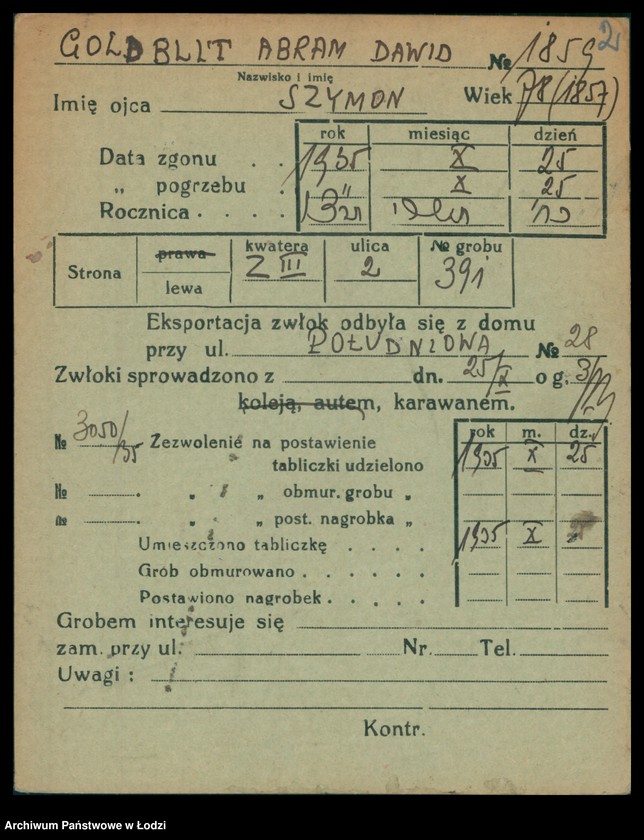 GOLDBLIT ABRAM DAWID № 1859 2
Nazwisko i imię
Imię ojca SZYMON Wiek 78 (1857)
rok miesiąc dzień
Data zgonu . . 1935 X 25
„ pogrzebu . " X 25
Rocznica . . . .
Strona prawa kwatera ulica № grobu
lewa Z III 2 391
Eksportacja zwłok odbyła się z domu
przy ul. POŁUDNIOWA № 28
Zwłoki sprowadzono z dn. 25/X o g. 3
koleją, autem, karawanem.
rok m. dz.
№ 3050/35 Zezwolenie na postawienie
tabliczki udzielono 1935 X 25
№ . „ „ obmur. grobu „
№ . „ „ post. nagrobka „
Umieszczono tabliczkę . . . . 1935 X
Grób obmurowano . . . . . .
Postawiono nagrobek . . . . .
Grobem interesuje się
zam. przy ul. Nr. Tel.
Uwagi :
Kontr.
Archiwum Państwowe w Łodzi